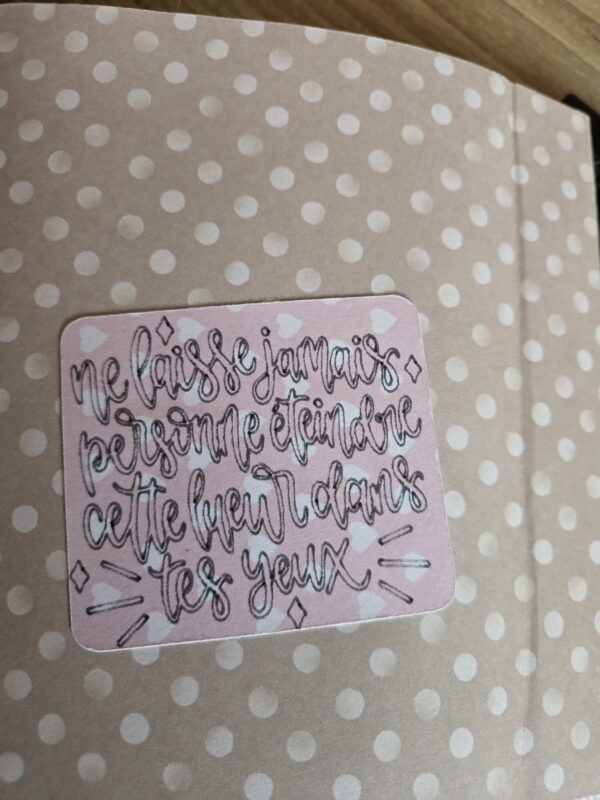 ne laisse jamais
personne éteindre
cette lueur dans
tes yeux